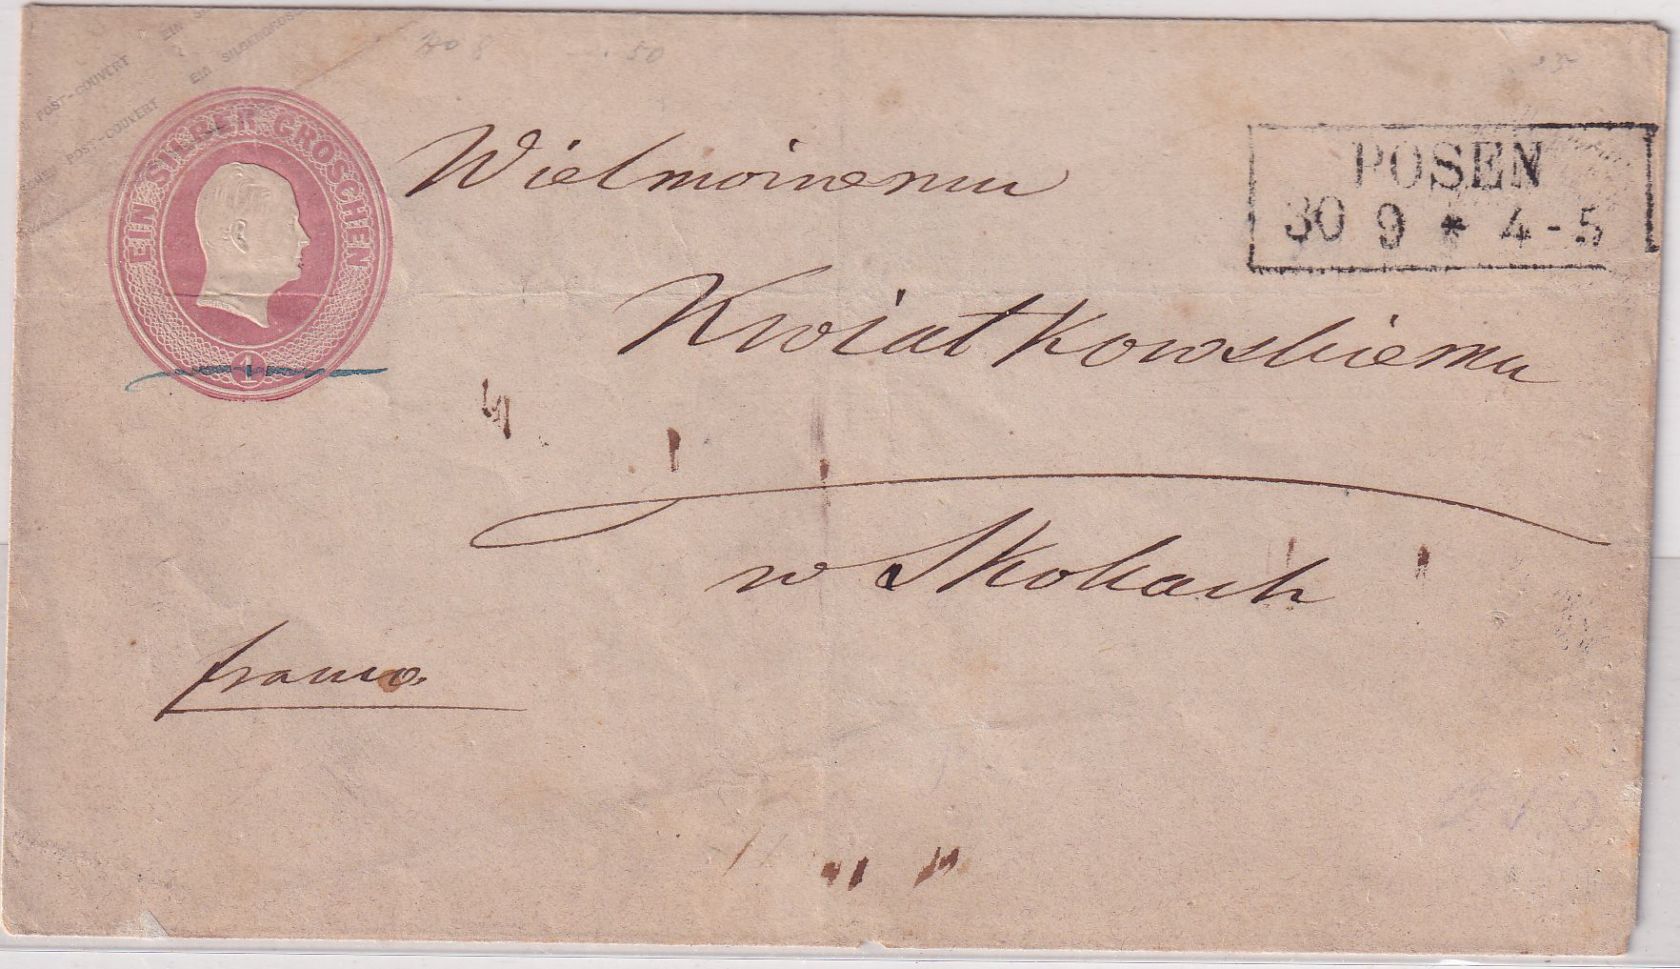 POST-COUVERT EIN SILBERGROSCHEN
POST-COUVERT EIN SILBERGROSCHEN
EIN SILBER GROSCHEN
1
POSEN
30 9 * 4-5
Wielmoinemu
Kwiatkowskiemu
w Skokach
franco